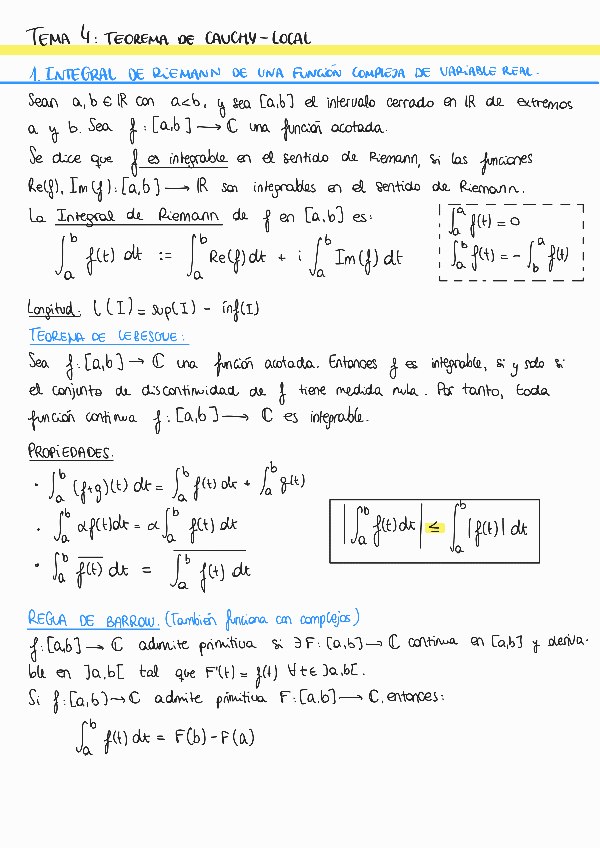 TEMA 4: TEOREMA DE CAUCHY-LOCAL
1. INTEGRAL DE RIEMANN DE UNA FUNCIÓN COMPLEJA DE VARIABLE REAL.
Sean a,b ∈ ℝ con a<b, y sea [a,b] el intervalo cerrado en ℝ de extremos
a y b. Sea f:[a,b] → ℂ una función acotada.
Se dice que f es integrable en el sentido de Riemann, si las funciones
Re(f), Im(f):[a,b] → ℝ son integrables en el sentido de Riemann.
La Integral de Riemann de f en [a,b] es:
∫_a^b f(t) dt := ∫_a^b Re(f) dt + i ∫_a^b Im(f) dt
∫_a^a f(t) = 0
∫_a^b f(t) = - ∫_b^a f(t)
Longitud: l(I) = sup(I) - inf(I)
TEOREMA DE LEBESGUE:
Sea f:[a,b] → ℂ una función acotada. Entonces f es integrable, si y solo si
el conjunto de discontinuidad de f tiene medida nula. Por tanto, toda
función continua f:[a,b] → ℂ es integrable.
PROPIEDADES.
· ∫_a^b (f+g)(t) dt = ∫_a^b f(t) dt + ∫_a^b g(t)
· ∫_a^b αf(t)dt = α ∫_a^b f(t) dt
|∫_a^b f(t)dt| ≤ ∫_a^b |f(t)| dt
· ∫_a^b \overline{f(t)} dt = \overline{∫_a^b f(t) dt}
REGLA DE BARROW. (También funciona con complejos)
f:[a,b] → ℂ admite primitiva si ∃F:[a,b] → ℂ continua en [a,b] y deriva-
ble en ]a,b[ tal que F'(t) = f(t) ∀t∈]a,b[.
Si f:[a,b) → ℂ admite primitiva F:[a,b] → ℂ, entonces:
∫_a^b f(t) dt = F(b) - F(a)